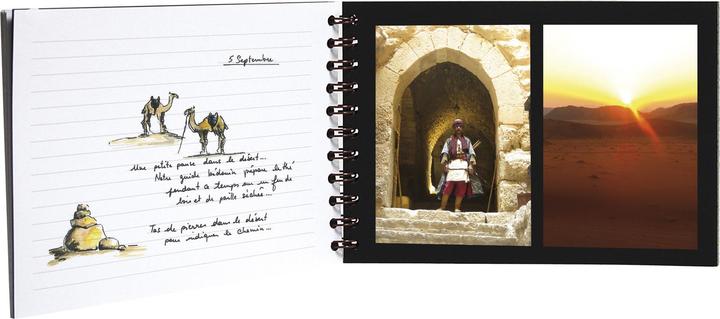 5 Septembre
Une petite pause dans le désert...
Notre guide bédouin prépare le thé
pendant ce temps sur un feu de
bois et de paille séchée...
Tas de pierres dans le désert
pour indiquer le chemin...